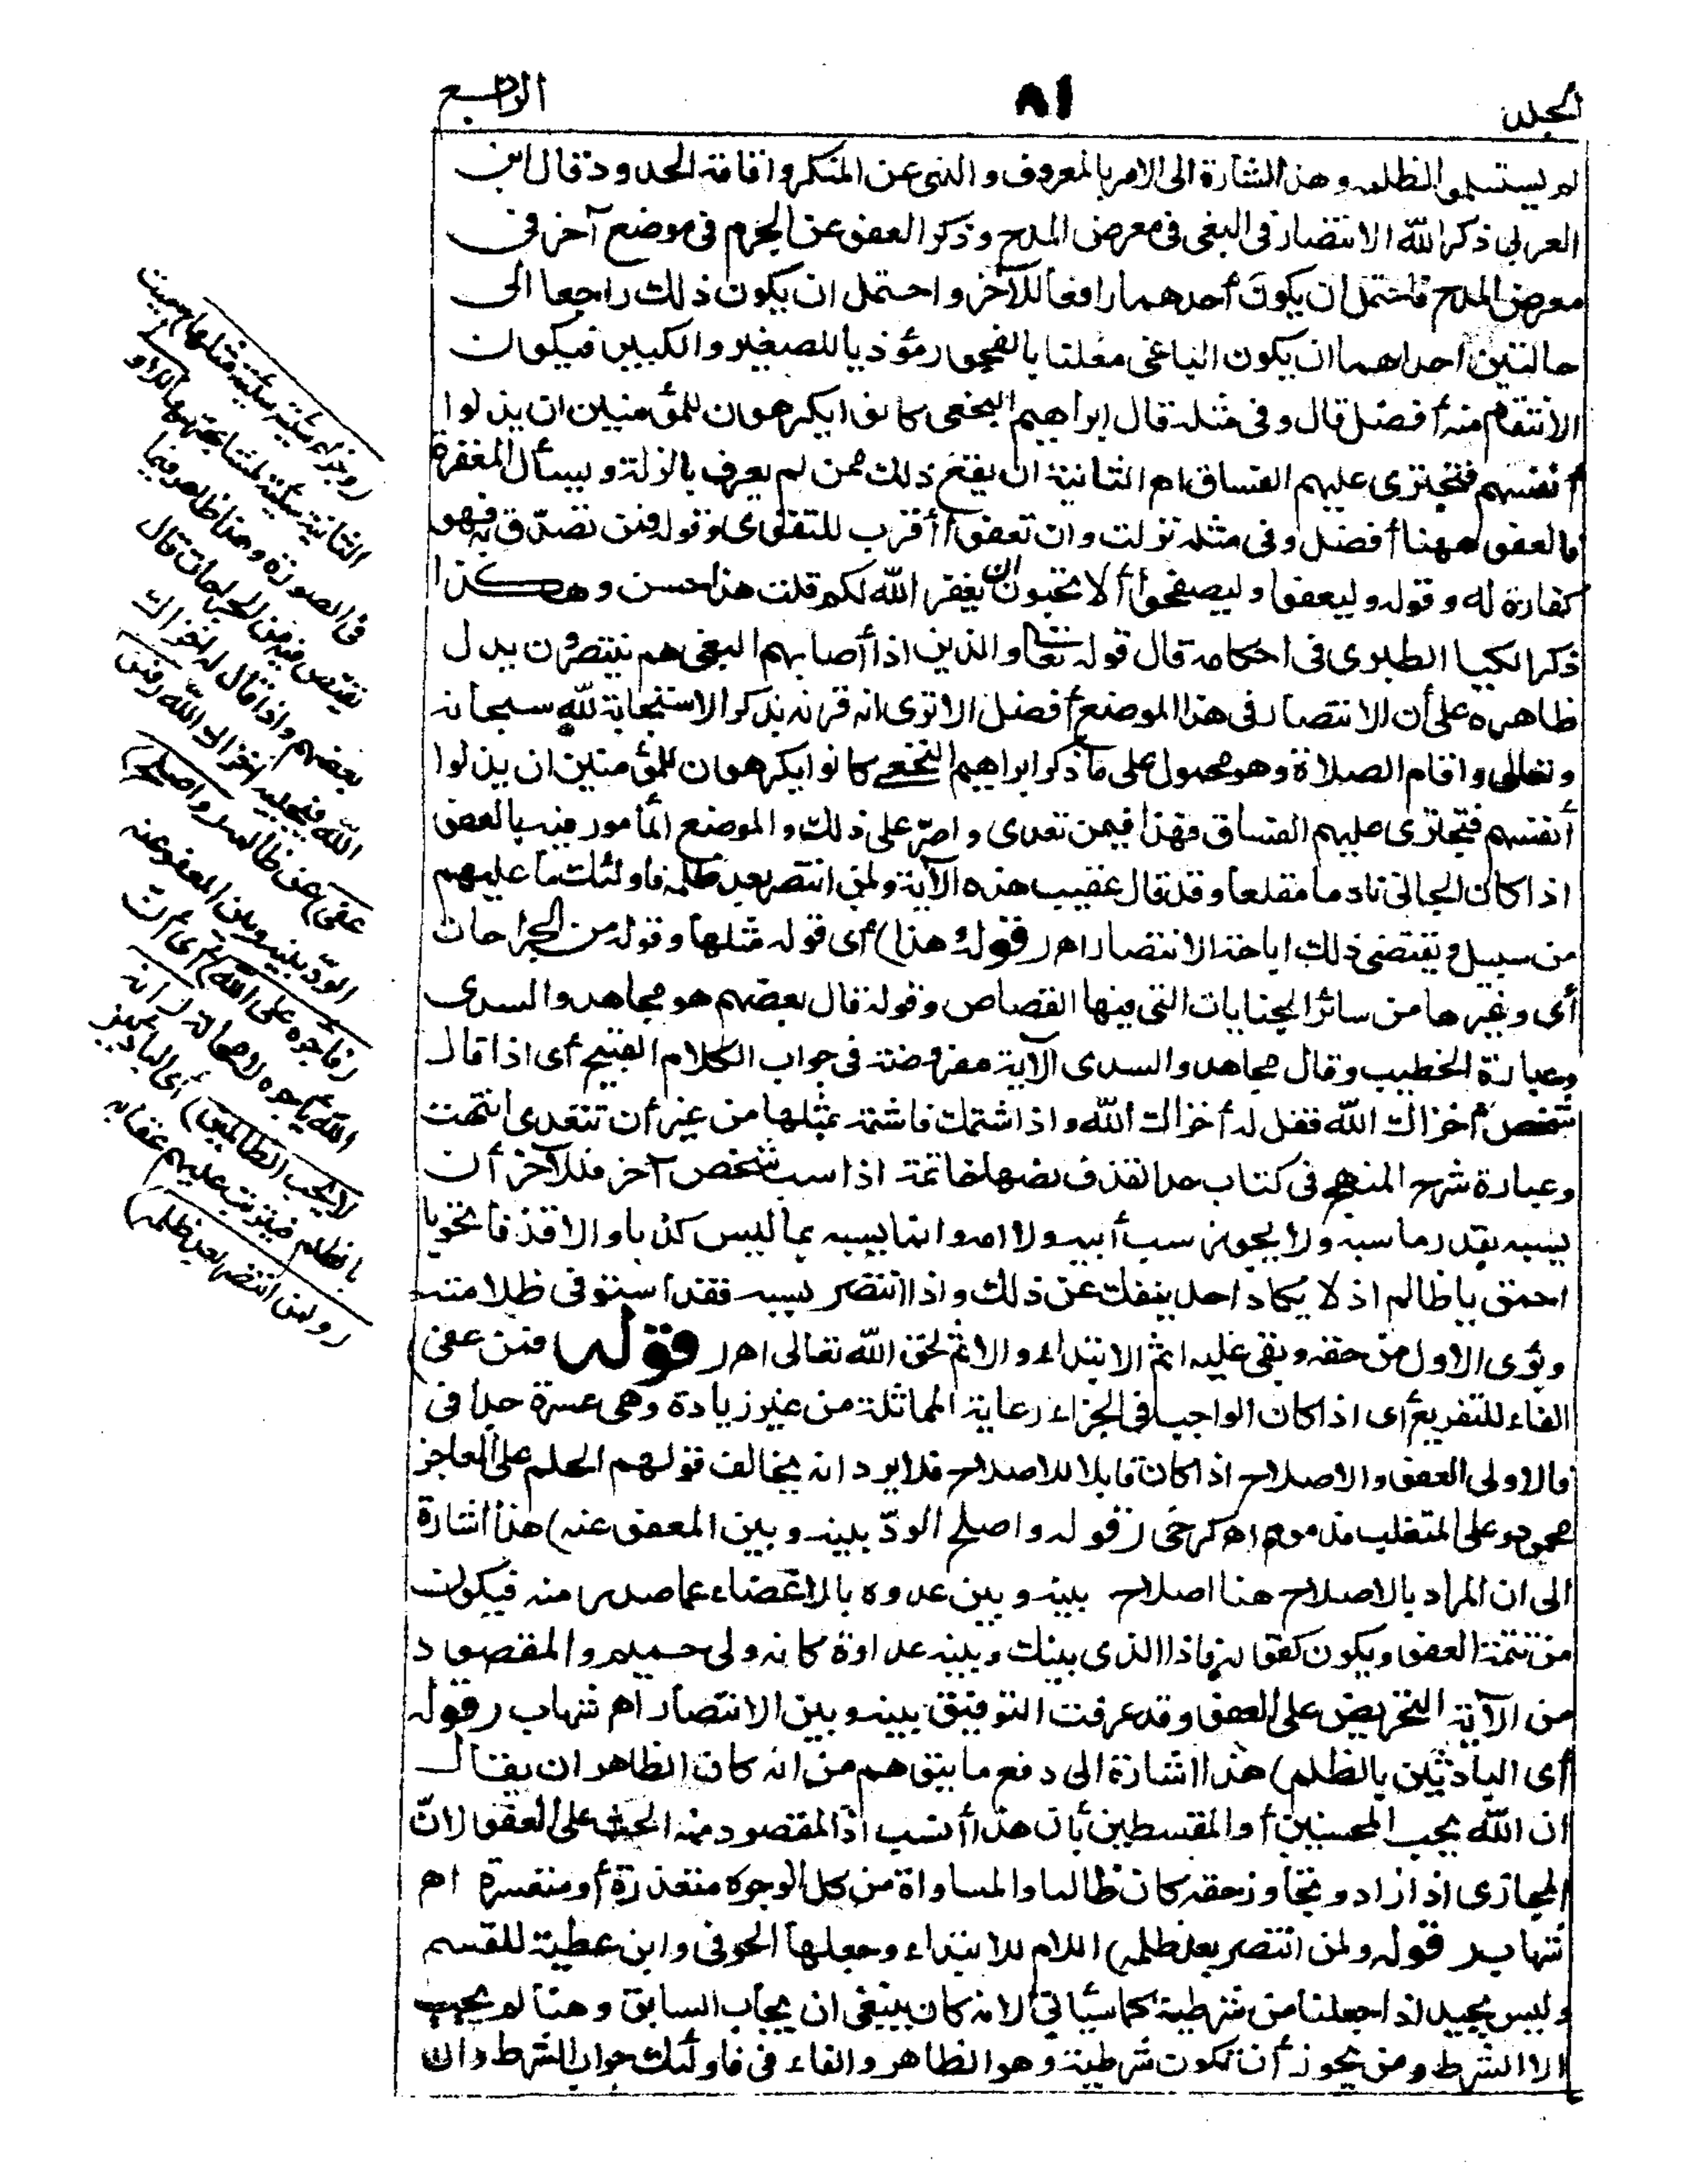 المجلد
٨١
الرابع
لم يستسلموا لظلمه وهذا اشارة الى الامر بالمعروف والنهى عن المنكر واقامة الحدود قال ابن
العربى ذكر الله الانتصار فى البغى فى معرض المدح وذكر العفو عن الجرم فى موضع آخر فى
معرض المدح فاحتمل ان يكون أحدهما رافعا للآخر واحتمل ان يكون ذلك راجعا الى
حالتين احداهما ان يكون الباغى معلنا بالفجور مؤذيا للصغير والكبير فيكون
الانتقام منه أفضل قال وفى مثله قال ابراهيم النخعى كانوا يكرهون للمؤمنين ان يذلوا
أنفسهم فتجترى عليهم الفساق اه الثانية ان يقع ذلك ممن لم يعرف بالزلة ويسأل المغفرة
فالعفو ههنا أفضل وفى مثله نزلت وان تعفوا أقرب للتقوى وقوله فمن تصدّق به فهو
كفارة له وقوله وليعفوا وليصفحوا ألا تحبون ان يغفر الله لكم قلت هذا حسن وهكذا
ذكر الكيا الطبرى فى احكامه قال قوله تعالى والذين اذا أصابهم البغى هم ينتصرون يدل
ظاهره على أن الانتصار فى هذا الموضع أفضل الا ترى انه قرنه بذكر الاستجابة لله سبحانه
وتعالى واقام الصلاة وهو محمول على ما ذكر ابراهيم النخعى كانوا يكرهون للمؤمنين ان يذلوا
أنفسهم فتجترى عليهم الفساق فهذا فيمن تعدى واصرّ على ذلك والموضع المأمور فيه بالعفو
اذا كان الجانى نادما مقلعا وقد قال عقيب هذه الآية ولمن انتصر بعد ظلمه فاولئك ما عليهم
من سبيل ويقتضى ذلك اباحة الانتصار اه (قوله وهذا) أى قوله مثلها وقوله من الجراحات
أى وغيرها من سائر الجنايات التى فيها القصاص وقوله قال بعضهم هو مجاهد والسدى
وعبارة الخطيب وقال مجاهد والسدى الآية مفروضة فى جواب الكلام القبيح أى اذا قال
شخص أخزاك الله فقل له أخزاك الله واذا شتمك فاشتمه بمثلها من غير أن تتعدى انتهت
وعبارة شرح المنهج فى كتاب حد القذف نصها خاتمة اذا سب شخص آخر فللآخر أن
يسبه بقدر ما سبه ولا يجوز سب أبيه ولا امه وانما يسبه بما ليس كذبا ولا قذفا نحو يا
احمق يا ظالم اذ لا يكاد احد ينفك عن ذلك واذا انتصر بسبه فقد استوفى ظلامته
وبرئ الاول من حقه وبقى عليه اثم الابتداء والاثم لحق الله تعالى اه (قوله فمن عفى)
الفاء للتفريع أى اذا كان الواجب فى الجزاء رعاية المماثلة من غير زيادة وهى عسرة جدا فى
فالاولى العفو والاصلاح اذا كان قابلا للاصلاح فلا يرد انه يخالف قولهم الحلم على العاجز
محمود وعلى المتغلب مذموم اه كرخى (قوله واصلح الودّ بينه وبين المعفو عنه) هذا اشارة
الى ان المراد بالاصلاح هنا اصلاح بينه وبين عدوه بالاغضاء عما صدر منه فيكون
من تتمة العفو ويكون كقوله فاذا الذى بينك وبينه عداوة كانه ولى حميم والمقصود
من الآية التحريض على العفو وقد عرفت التوفيق بينه وبين الانتصار اه شهاب (قوله
أى البادئين بالظلم) هذا اشارة الى دفع ما يتوهم من انه كان الظاهر ان يقال
ان الله يحب المحسنين أو المقسطين بأن هذا أنسب اذ المقصود منه الحث على العفو لانّ
المجازى اذا زاد وتجاوز حقه كان ظالما والمساواة من كل الوجوه متعذرة أو متعسرة اه
شهاب (قوله ولمن انتصر بعد ظلمه) اللام للابتداء وجعلها الحوفى وابن عطية للقسم
وليس بجيد اذا جعلنا من شرطية كما سيأتى لانه كان ينبغى ان يجاب السابق وهنا لم يجب
الا الشرط ومن يجوز أن تكون شرطية وهو الظاهر والفاء فى فاولئك جواب الشرط وان
(وجزاء سيئة سيئة مثلها) سميت
الثانية سيئة لمشابهتها للاولى
فى الصورة وهذا ظاهر فيما
يقتص فيه من الجراحات قال
بعضهم واذا قال له اخزاك
الله فيجيبه اخزاك الله (فمن
عفى) عن ظالمه (واصلح)
الودّ بينه وبين المعفو عنه
(فأجره على الله) أى ان
الله يأجره لا محالة (انه
لا يحب الظالمين) أى البادئين
بالظلم فيترتب عليهم عقابه
(ولمن انتصر بعد ظلمه)